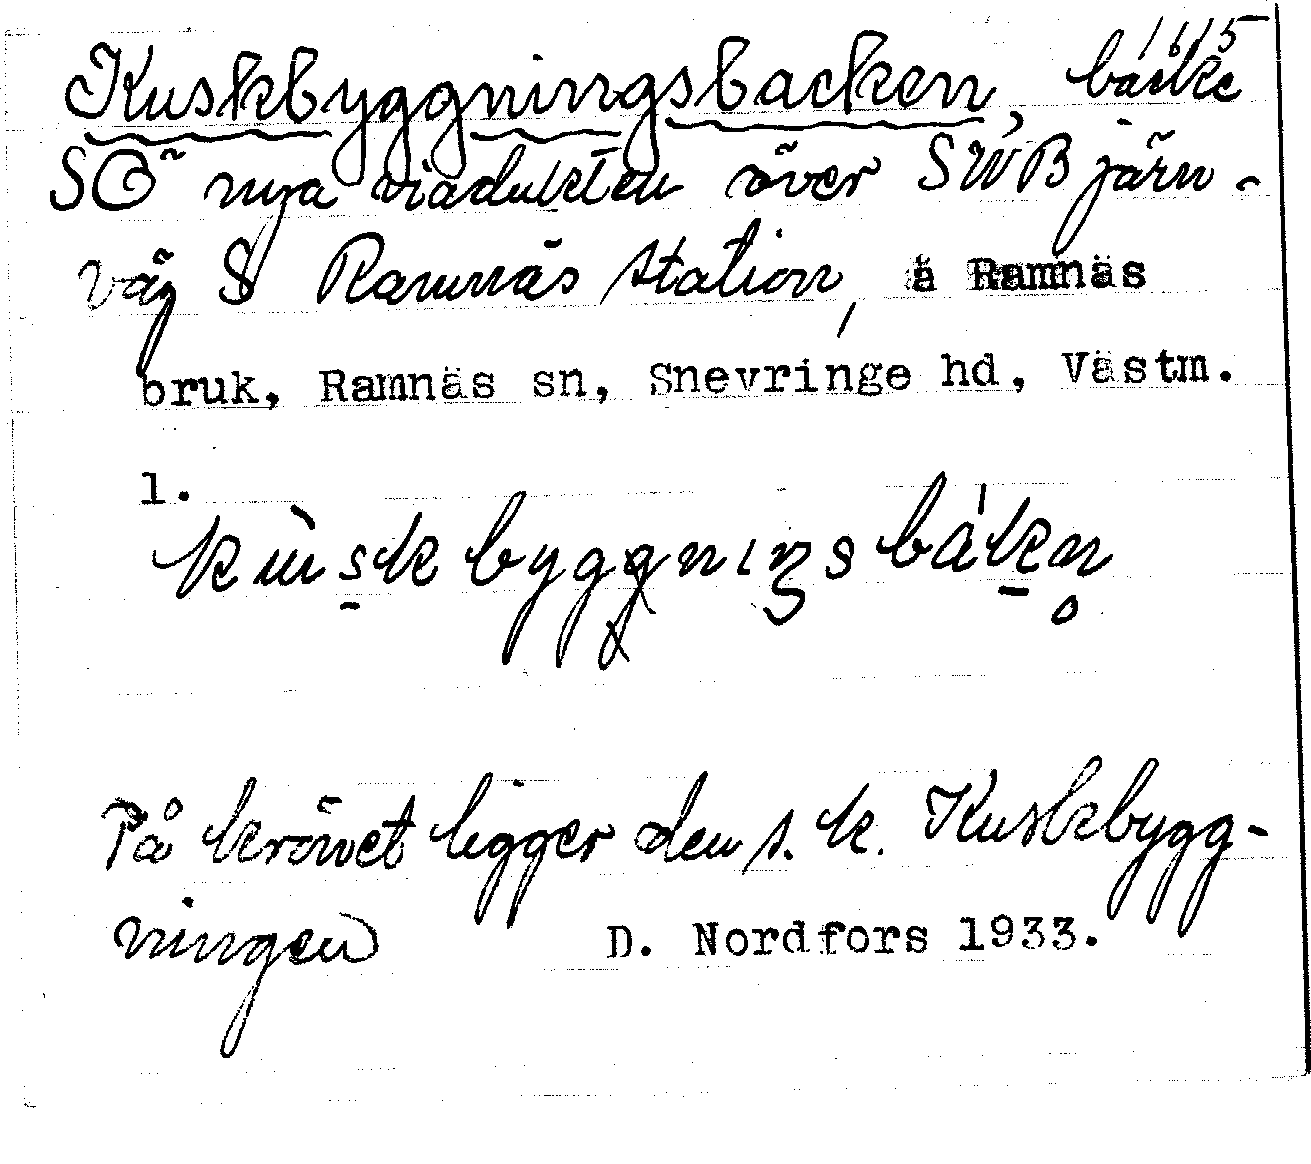 1615
Kuskbyggningsbacken, backe
SÖ nya viadukten över SWB järn-
väg S Ramnäs station, å Ramnäs
bruk, Ramnäs sn, Snevringe hd, Västm.
1.
kùskbyggnıŋsbákn̥
På krönet ligger den s. k. Kuskbygg-
ningen D. Nordfors 1933.